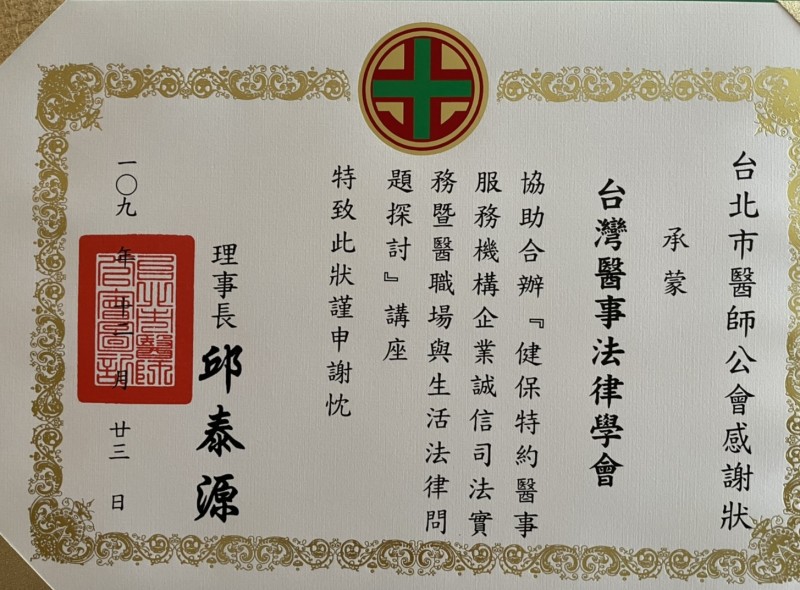 台北市醫師公會感謝狀
承蒙
台灣醫事法律學會
協助合辦『健保特約醫事
服務機構企業誠信司法實
務暨醫職場與生活法律問
題探討』講座
特致此狀謹申謝忱
理事長 邱泰源
一〇九年十二月廿三日